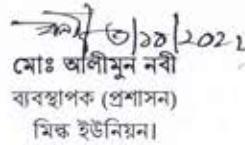 ৩/১০/২০২২
মোঃ আলীমুন নবী
ব্যবস্থাপক (প্রশাসন)
মিল্ক ইউনিয়ন।